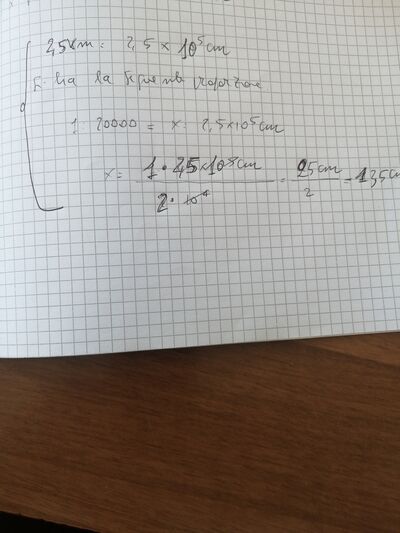 2,5 km = 2,5 × 10⁵ cm
si ha la seguente proporzione
1 : 20000 = x : 2,5×10⁵ cm
x = 1 · 2,5×10⁵ cm / 2 · 10⁴ = 25 cm / 2 = 12,5 cm